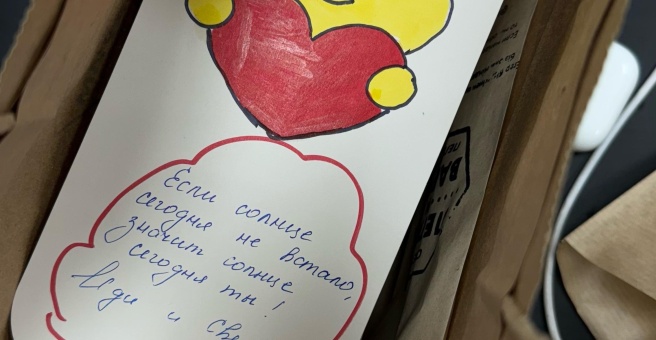 Если солнце
сегодня не встало,
значит солнце
сегодня ты!
Иди и